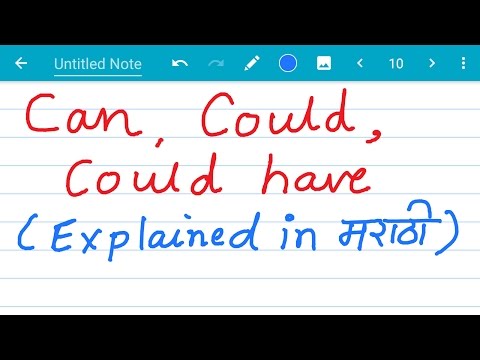 Untitled Note 10
Can, Could,
Could have
(Explained in मराठी)